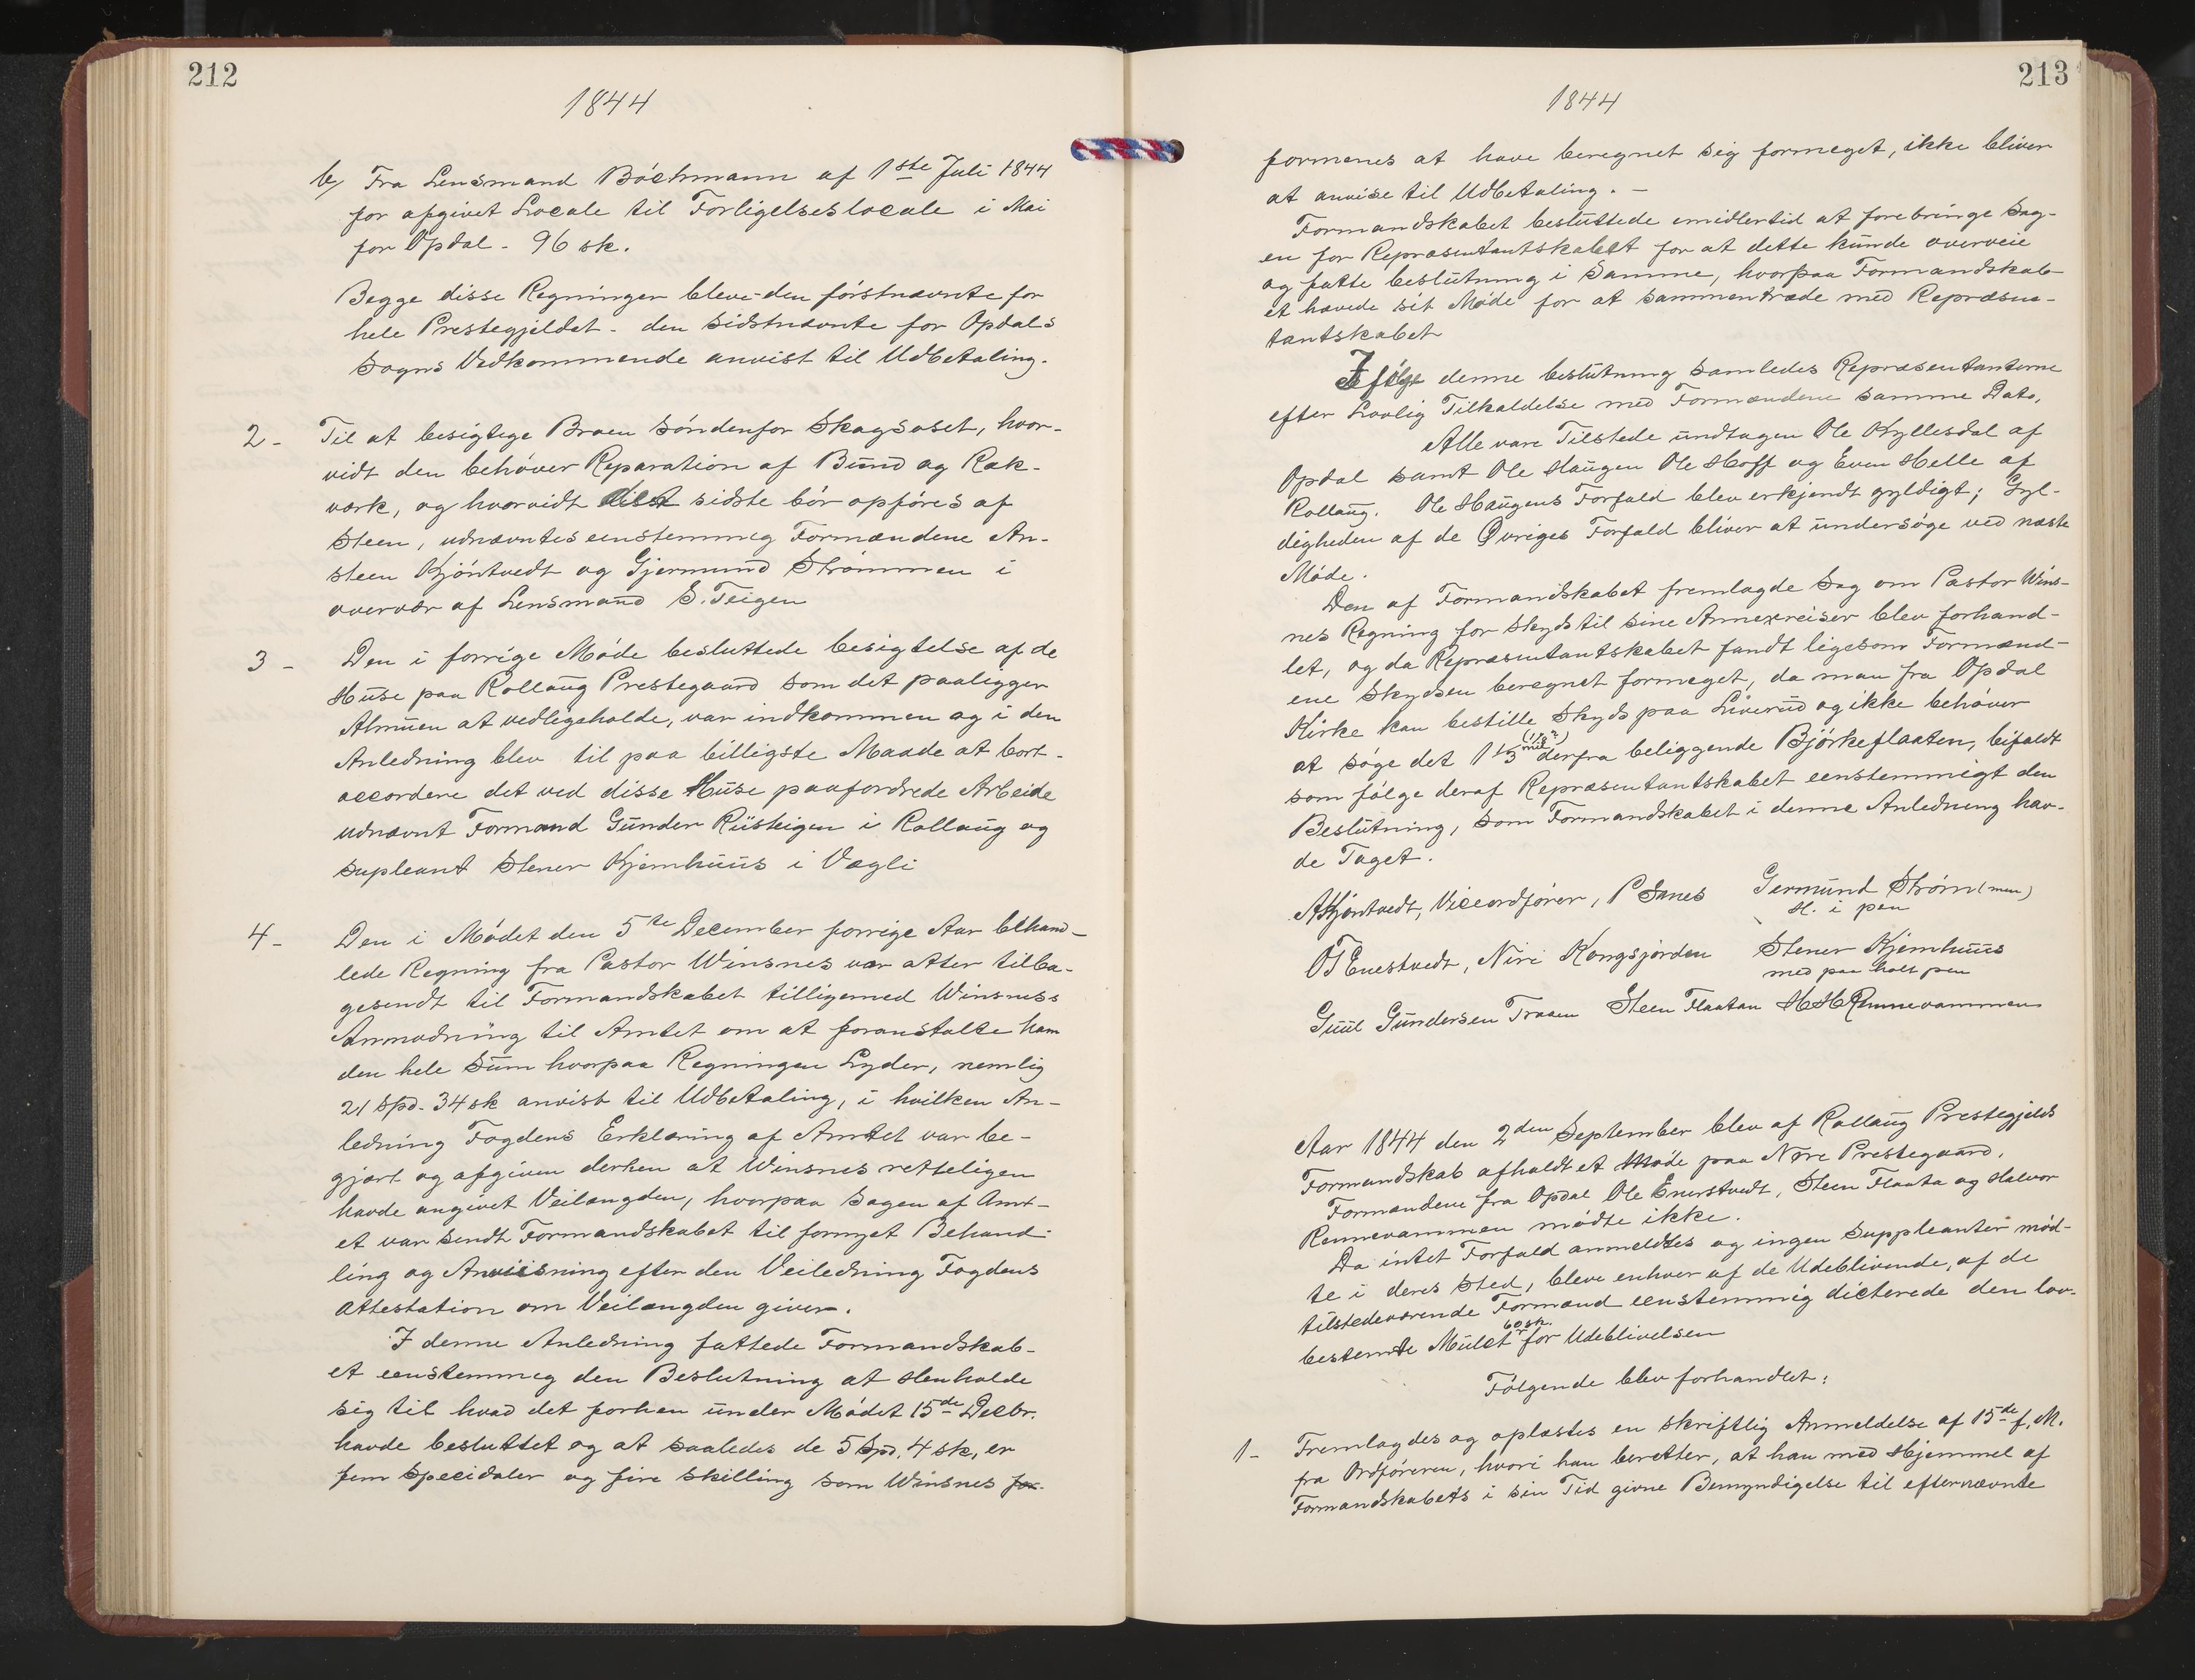 212
1844
b, Fra Lensmand Böchmann af 1ste Juli 1844
for afgivet Locale til Forligelseslocale i Mai
for Opdal - 96 sk.
Begge disse Regninger bleve den førstnævnte for
hele Prestegjeldet - den sidstnævnte for Opdals
Sogns Vedkommende anvist til Udbetaling.
2 - Til at besigtige Broen Søndenfor Skagsoset, hvor-
vidt den behøver Reparation af Bund og Ræk-
værk, og hvorvidt sidste bør opføres af
Steen, udnævntes eenstemmig Formændene An-
steen Kjøntvedt og Gjermund Strømmen i
overvær af Lensmand S. Teigen
3 - Den i forrige Møde besluttede besigtelse af de
Huse paa Rollaug Prestegaard som det paaligger
Almuen at vedligeholde, var indkommen og i den
Anledning blev til paa billigste Maade at bort-
accordere det ved disse Huse paafordrede Arbeide
udnævnt Formand Gunder Rusteigen i Rollaug og
supleant Stener Kjemhuus i Vægli
4 - Den i Mødet den 5te December forrige Aar behand-
lede Regning fra Pastor Winsnes var atter tilba-
gesendt til Formandskabet tilligemed Winsness
Anmodning til Amtet om at foranstalte ham
den hele Sum hvorpaa Regningen Lyder, nemlig
21 Spd. 34 sk anvist til Udbetaling, i hvilken An-
ledning Fogdens Erklæring af Amtet var be-
gjært og afgiven derhen at Winsnes retteligen
havde angivet Veilængden, hvorpaa Sagen af Amt-
et var sendt Formandskabet til fornyet Behand-
ling og Anviisning efter den Veiledning Fogdens
Attestation om Veilængden giver.
I denne Anledning fattede Formandskab-
et eenstemmeg den Beslutning at Henholde
sig til hvad det forhen under Mødet 15de Decbr.
havde besluttet og at saaledes de 5 Spd. 4 sk, er
fem Specidaler og fire Skilling som Winsnes for-
213
1844
formenes at have beregnet sig formeget, ikke bliver
at anvise til Udbetaling. -
Formandskabet besluttede emidlertid at forebringe Sag-
en for Repræsentantskabet for at dette kunde overveie
og fatte beslutning i Samme, hvorpaa Formandskab-
et hævede sit Møde for at sammentræde med Repræsen-
tantskabet
Ifølge denne beslutning samledes Repræsentanterne
efter Lovlig Tilkaldelse med Formændene samme Dato,
Alle vare Tilstede undtagen Ole Kyllesdal af
Opdal samt Ole Haugen Ole Hoff og Even Helle af
Rollaug. Ole Haugens Forfald blev erkjendt gyldigt; Gyl-
digheden af de Øvriges Forfald bliver at undersøge ved næste
Møde.
Den af Formandskabet fremlagde Sag om Pastor Wins-
nes Regning for Skyds til sine Annexreiser blev forhand-
let, og da Repræsentantskabet fandt ligesom Formænd-
ene Skydsen beregnet formeget, da man fra Opdal
Kirke kan bestille Skyds paa Liverud og ikke behøver
at søge det 1 1/3 (1/8?) mil derfra beliggende Bjørkeflaaten, bifaldt
som følge deraf Repræsentantskabet eenstemmigt den
Beslutning, som Formandskabet i denne Anledning hav-
de Taget.
AKjøntvedt, Viceordfører, P Sanes Germund Strøm(men)
H. i pen
OTEnestvedt, Niri Kongsjorden Stener Kjemhuus
med paa holt pen
Guul Gundersen Traaen Steen Flaatan HHRennevammen
Aar 1844 den 2den September blev af Rollaug Prestegjelds
Formandskab afholdt et Møde paa Nøre Prestegaard.
Formændene fra Opdal Ole Enerstvedt, Steen Flaata og Halvor
Rennevammen mødte ikke.
Da intet Forfald anmeldtes og ingen Suppleanter mød-
te i deres Sted, bleve enhver af de Udeblivende, af de
tilstedeværende Formænd eenstemmig dicterede den lov-
bestemte Mulct 60 sk. for Udeblivelsen
Følgende blev forhandlet:
1 - Fremlagdes og oplæstes en skriftlig Anmeldelse af 15de f. M.
fra Ordføreren, hvori han beretter, at han med Hjemmel af
Formandskabets i sin Tid givne Bemyndigelse til efternævnte